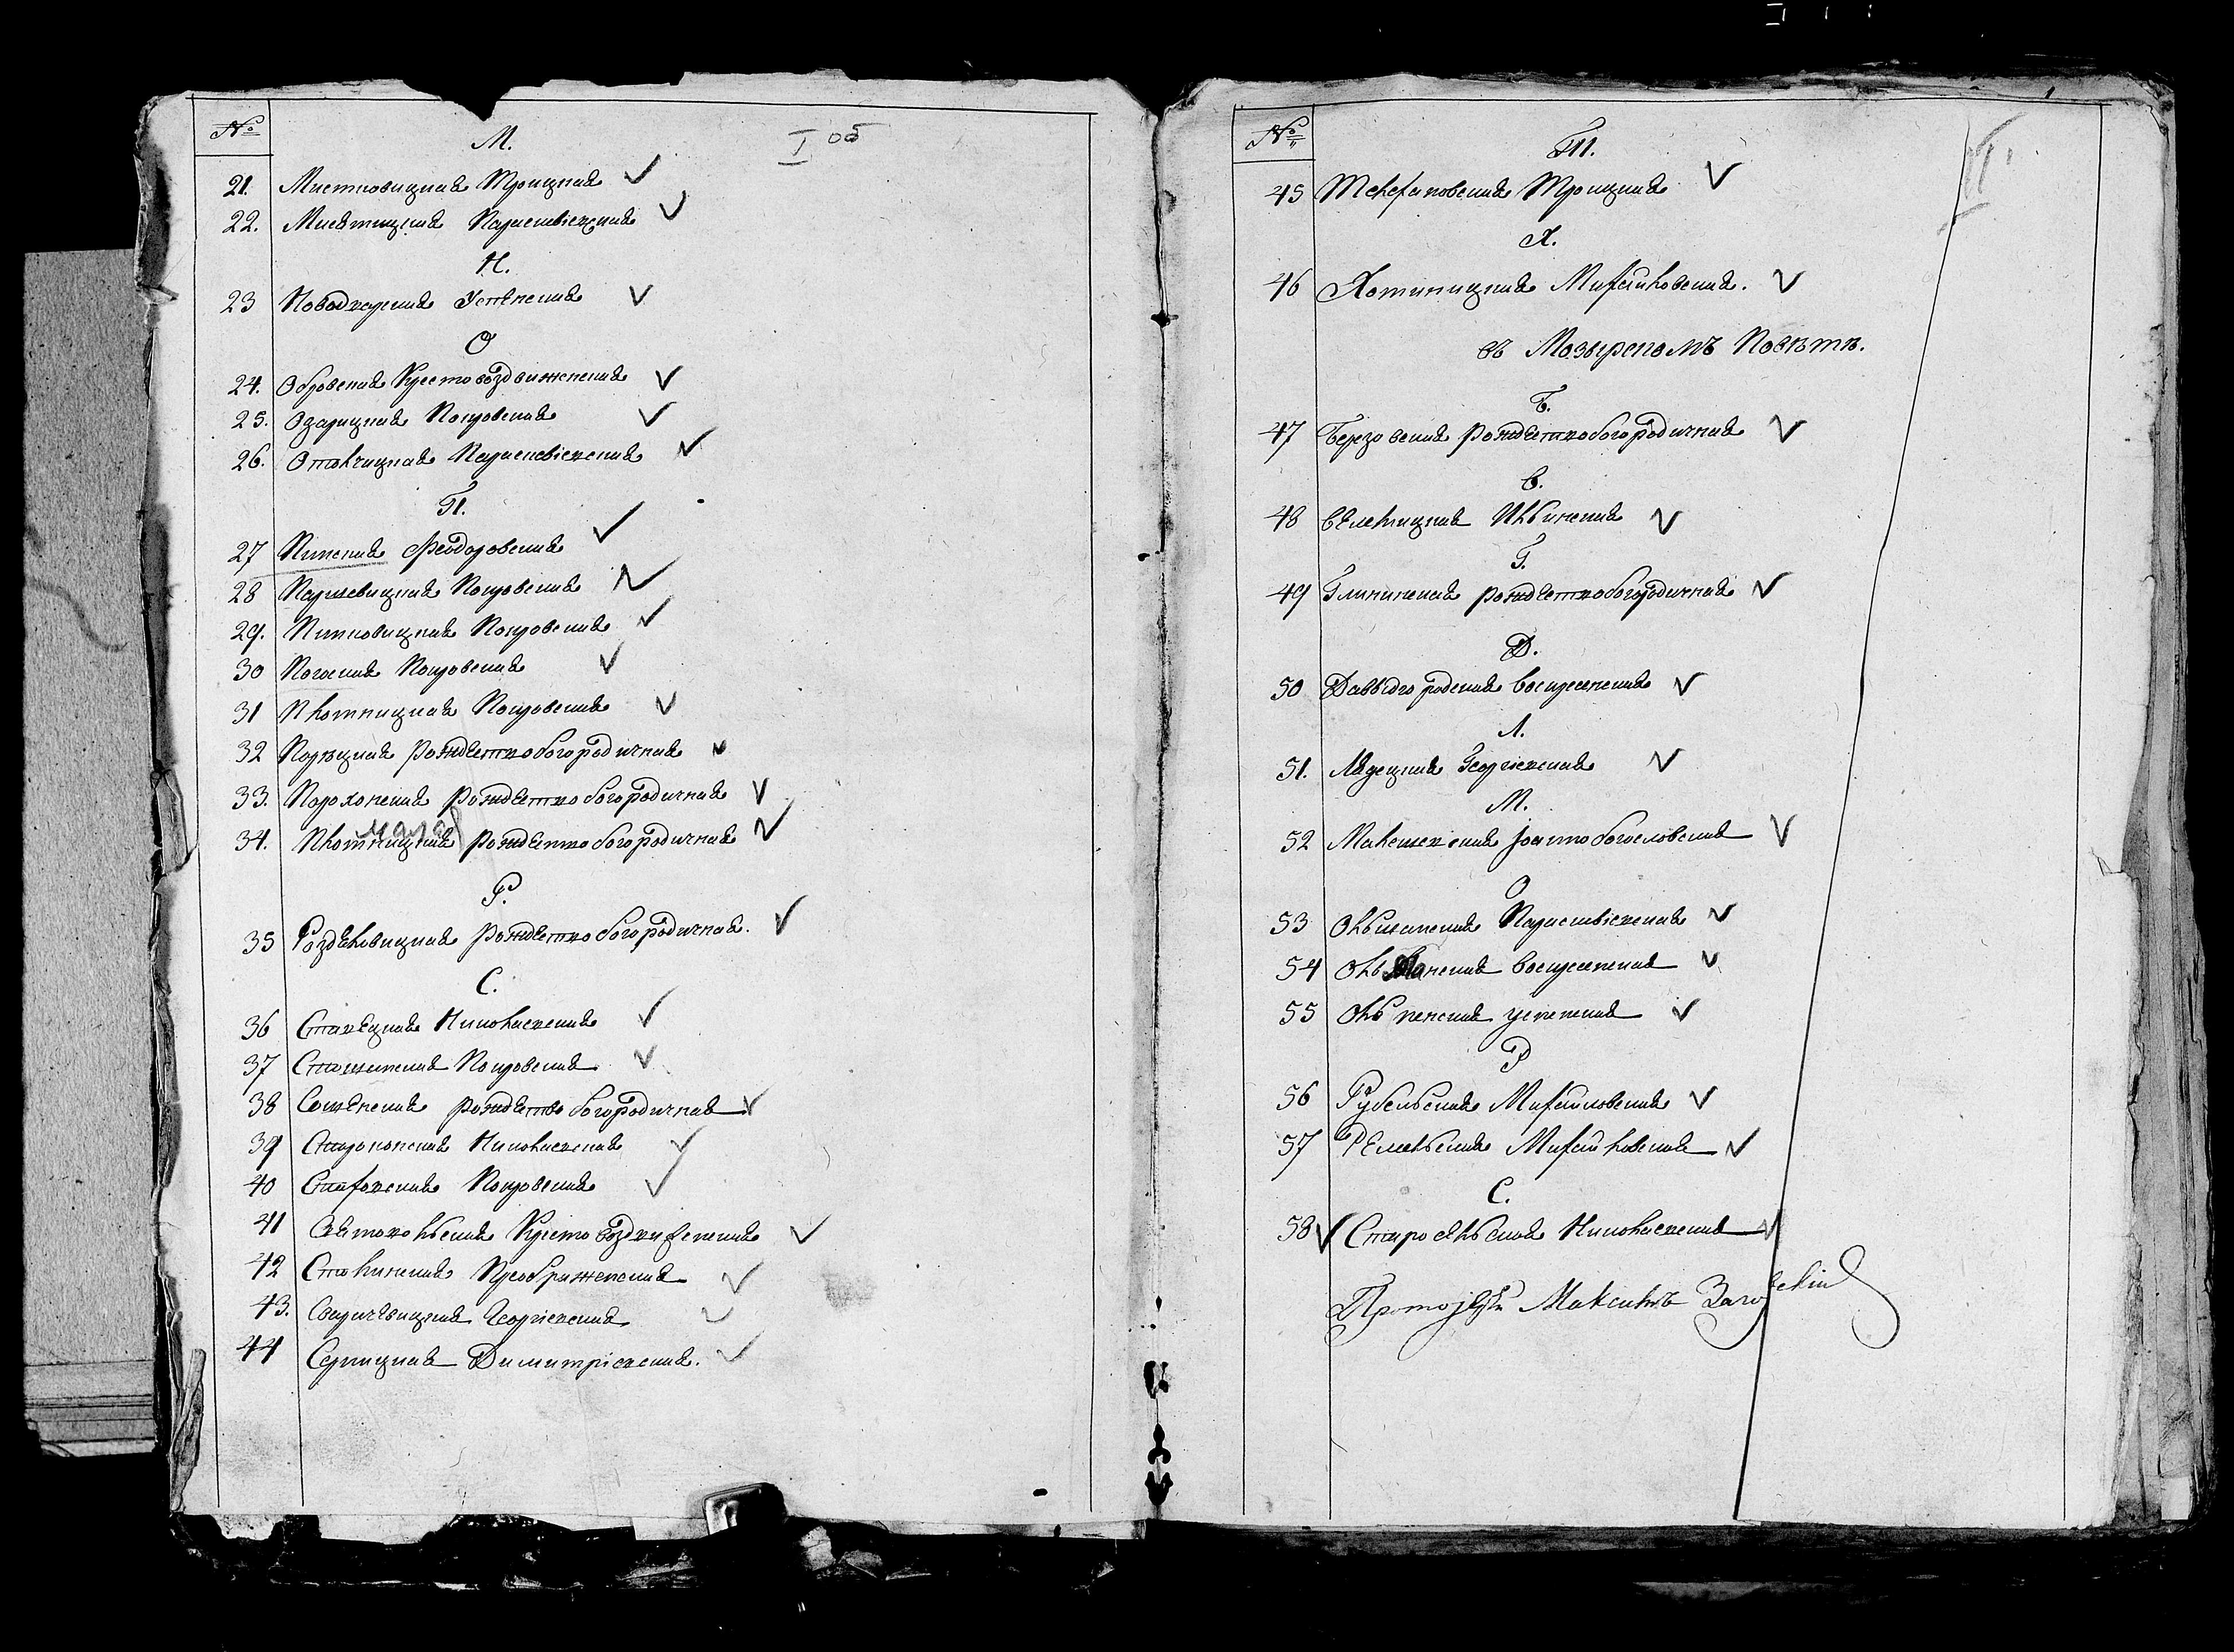 №
М.
I об
21. Мистковицкая Троицкая
22. Мисятицкая Параскевіевская
Н.
23 Новодворская Успенская
О
24. Обровская Крестовоздвиженская
25. Озарицкая Покровская
26. Отолчицкая Параскевіевская
П.
27 Пинская Феодоровская
28 Паршевицкая Покровская
29. Пинковицкая Покровская
30 Погоская Покровская
31 Плотницкая Покровская
32 Порѣцкая Рождественобогородичная
33. Порохонская Рождественобогородичная
34. Плотницкая Рождественобогородичная
Р.
35 Роздяловицкая Рождественобогородичная.
С.
36 Ставецкая Николаевская
37 Сташинская Покровская
38 Сошенская Рождествобогородичная
39 Староконская Николаевская
40 Стаховская Покровская
41 Святовольская Крестовоздвиженская
42 Столинская Преображенская
43. Сваричевицкая Георгіевская
44 Серницкая Димитріевская.
№
II
Т.
45 Телехановская Троицкая
Х.
46 Хотиницкая Михайловская.
въ Мозырскомъ Повѣтѣ.
Б.
47 Березовская Рождественобогородичная
В.
48 Велемицкая Ильинская
Г.
49 Глининская Рождественобогородичная
Д.
50 Давыдгородская Воскресенская
Л.
51. Лядецкая Георгіевская
М.
52 Малешевская Іоаннобогословская
О
53 Ольшанская Параскевіевская
54 Ольманская Воскресенская
55 Ольпенская Успенская
Р
56 Рубельская Михайловская
57 Ремельская Михайловская
С.
58 Старосельская Николаевская
Протоіерей Максимъ